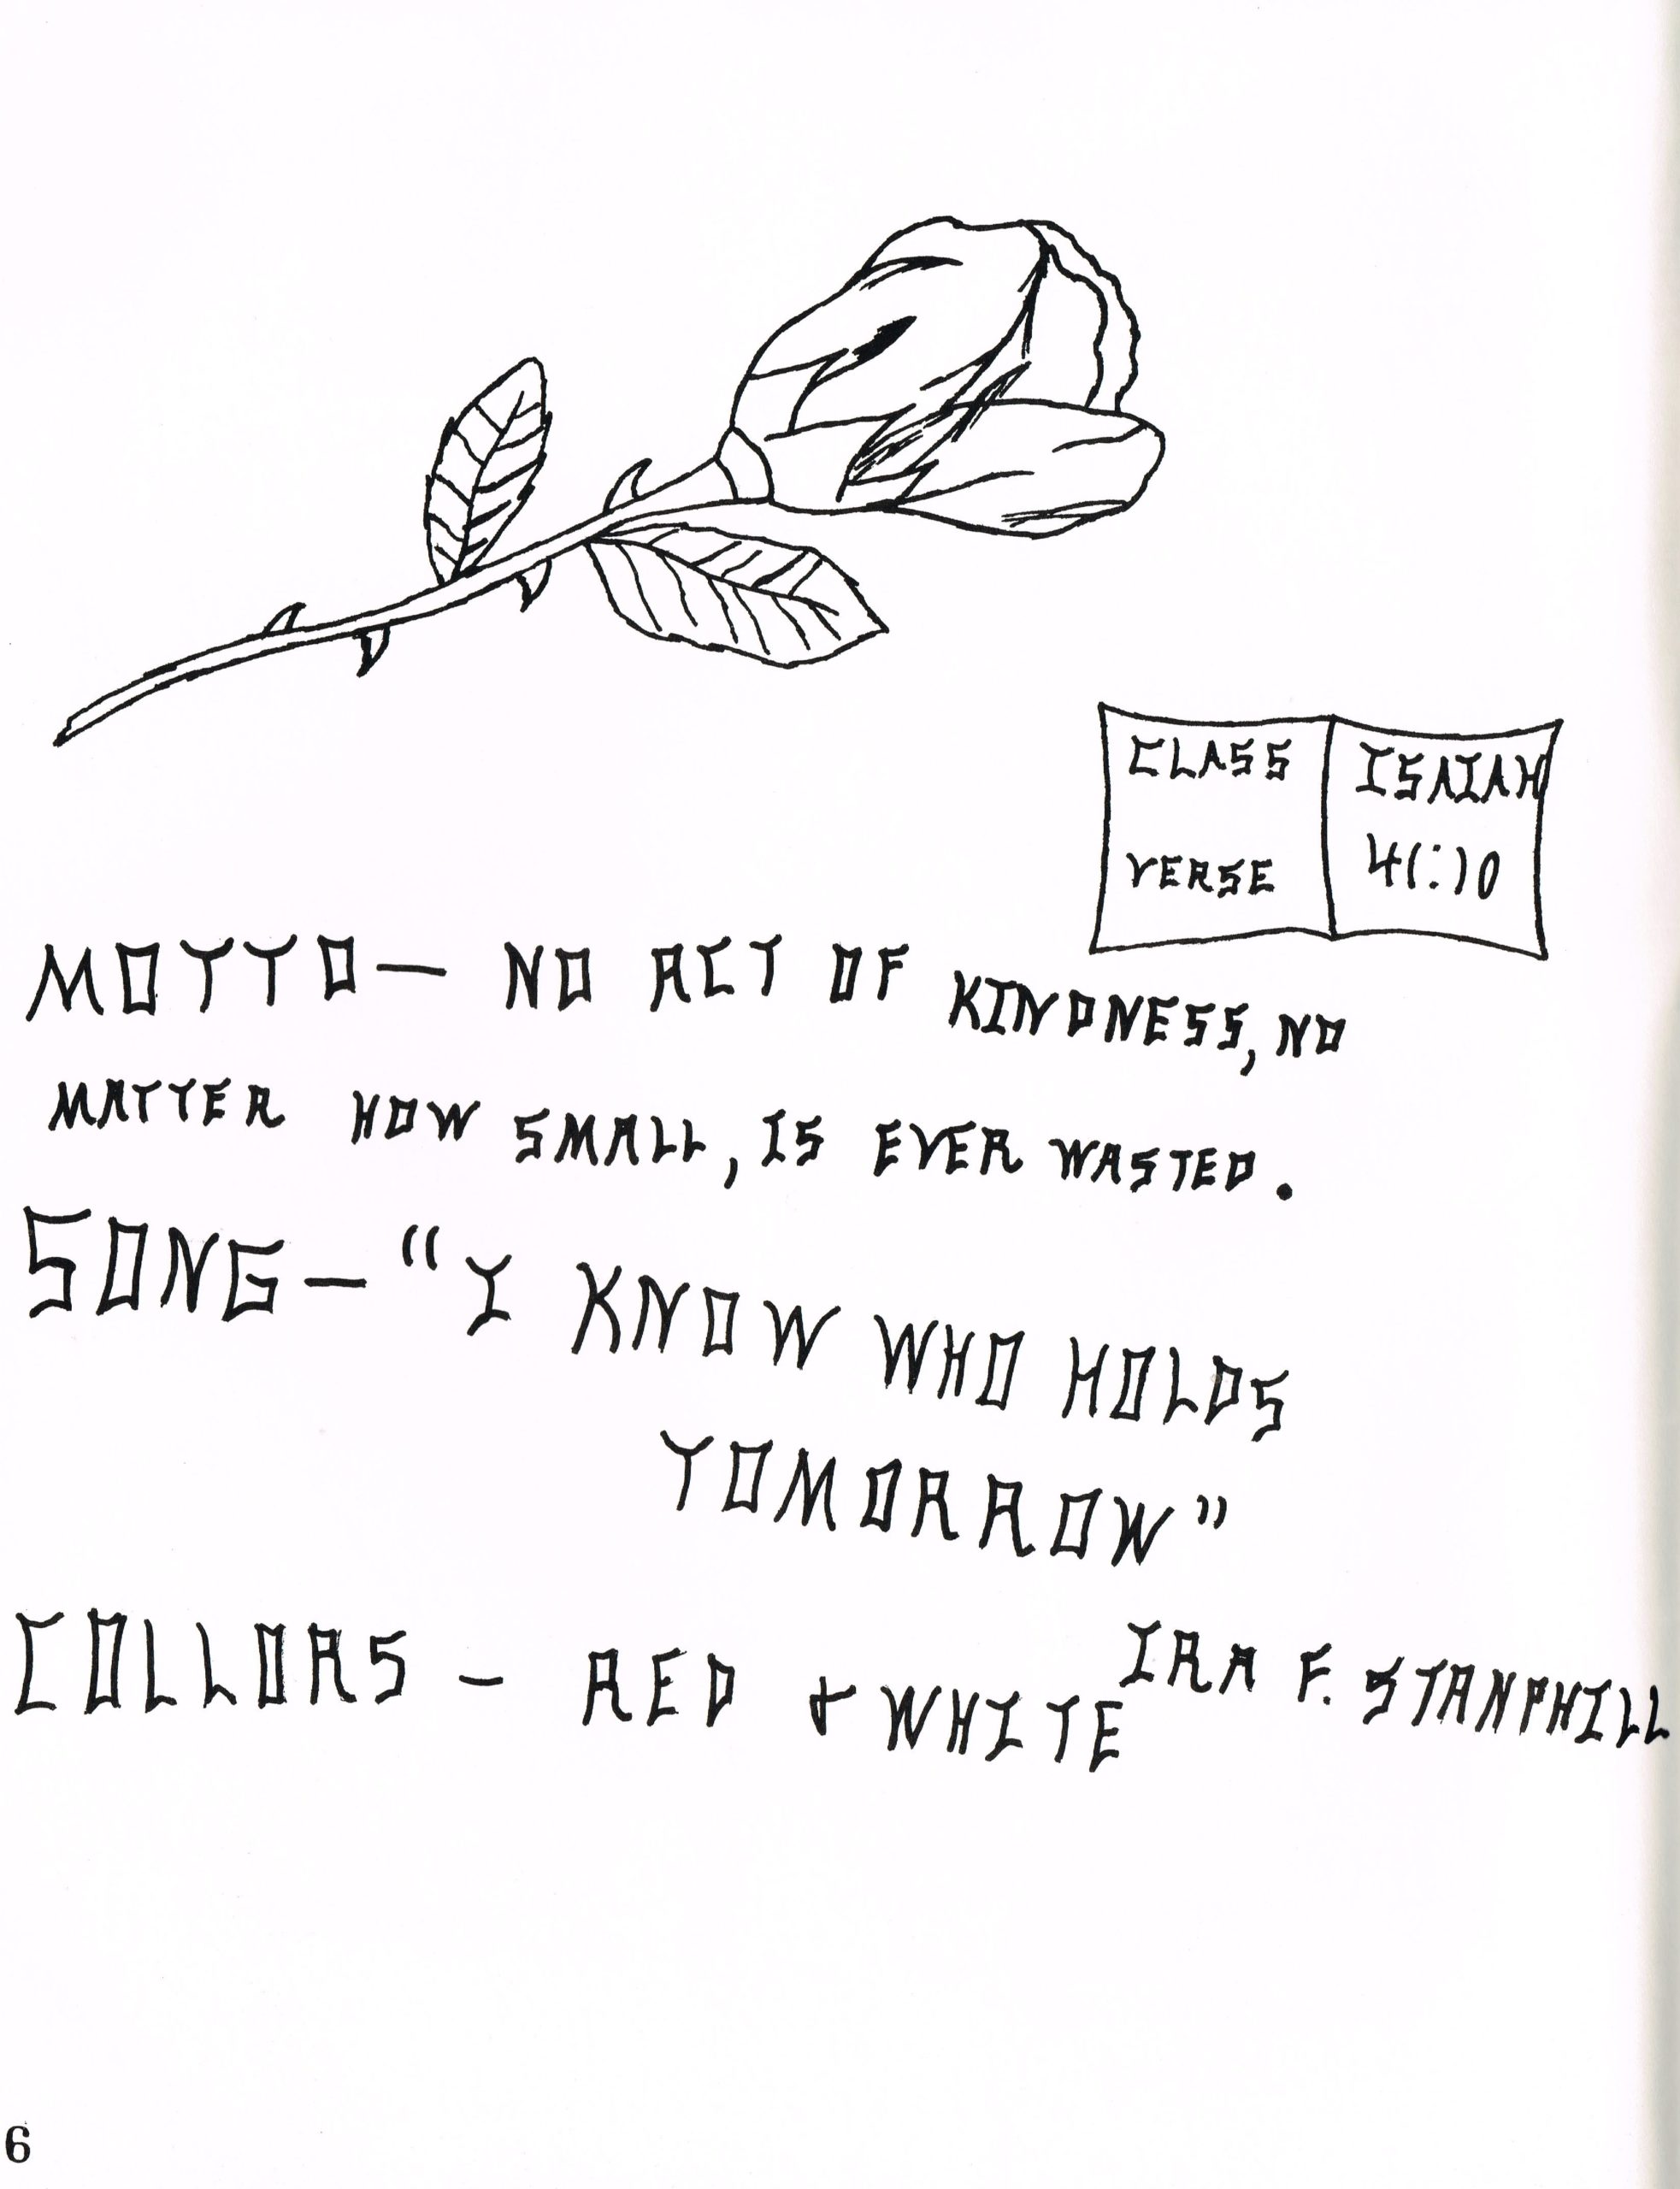 CLASS
VERSE
ISAIAH
41:10
MOTTO— NO ACT OF KINDNESS, NO
MATTER HOW SMALL, IS EVER WASTED.
SONG—"I KNOW WHO HOLDS
TOMORROW"
IRA F. STANPHILL
COLLORS - RED & WHITE
6